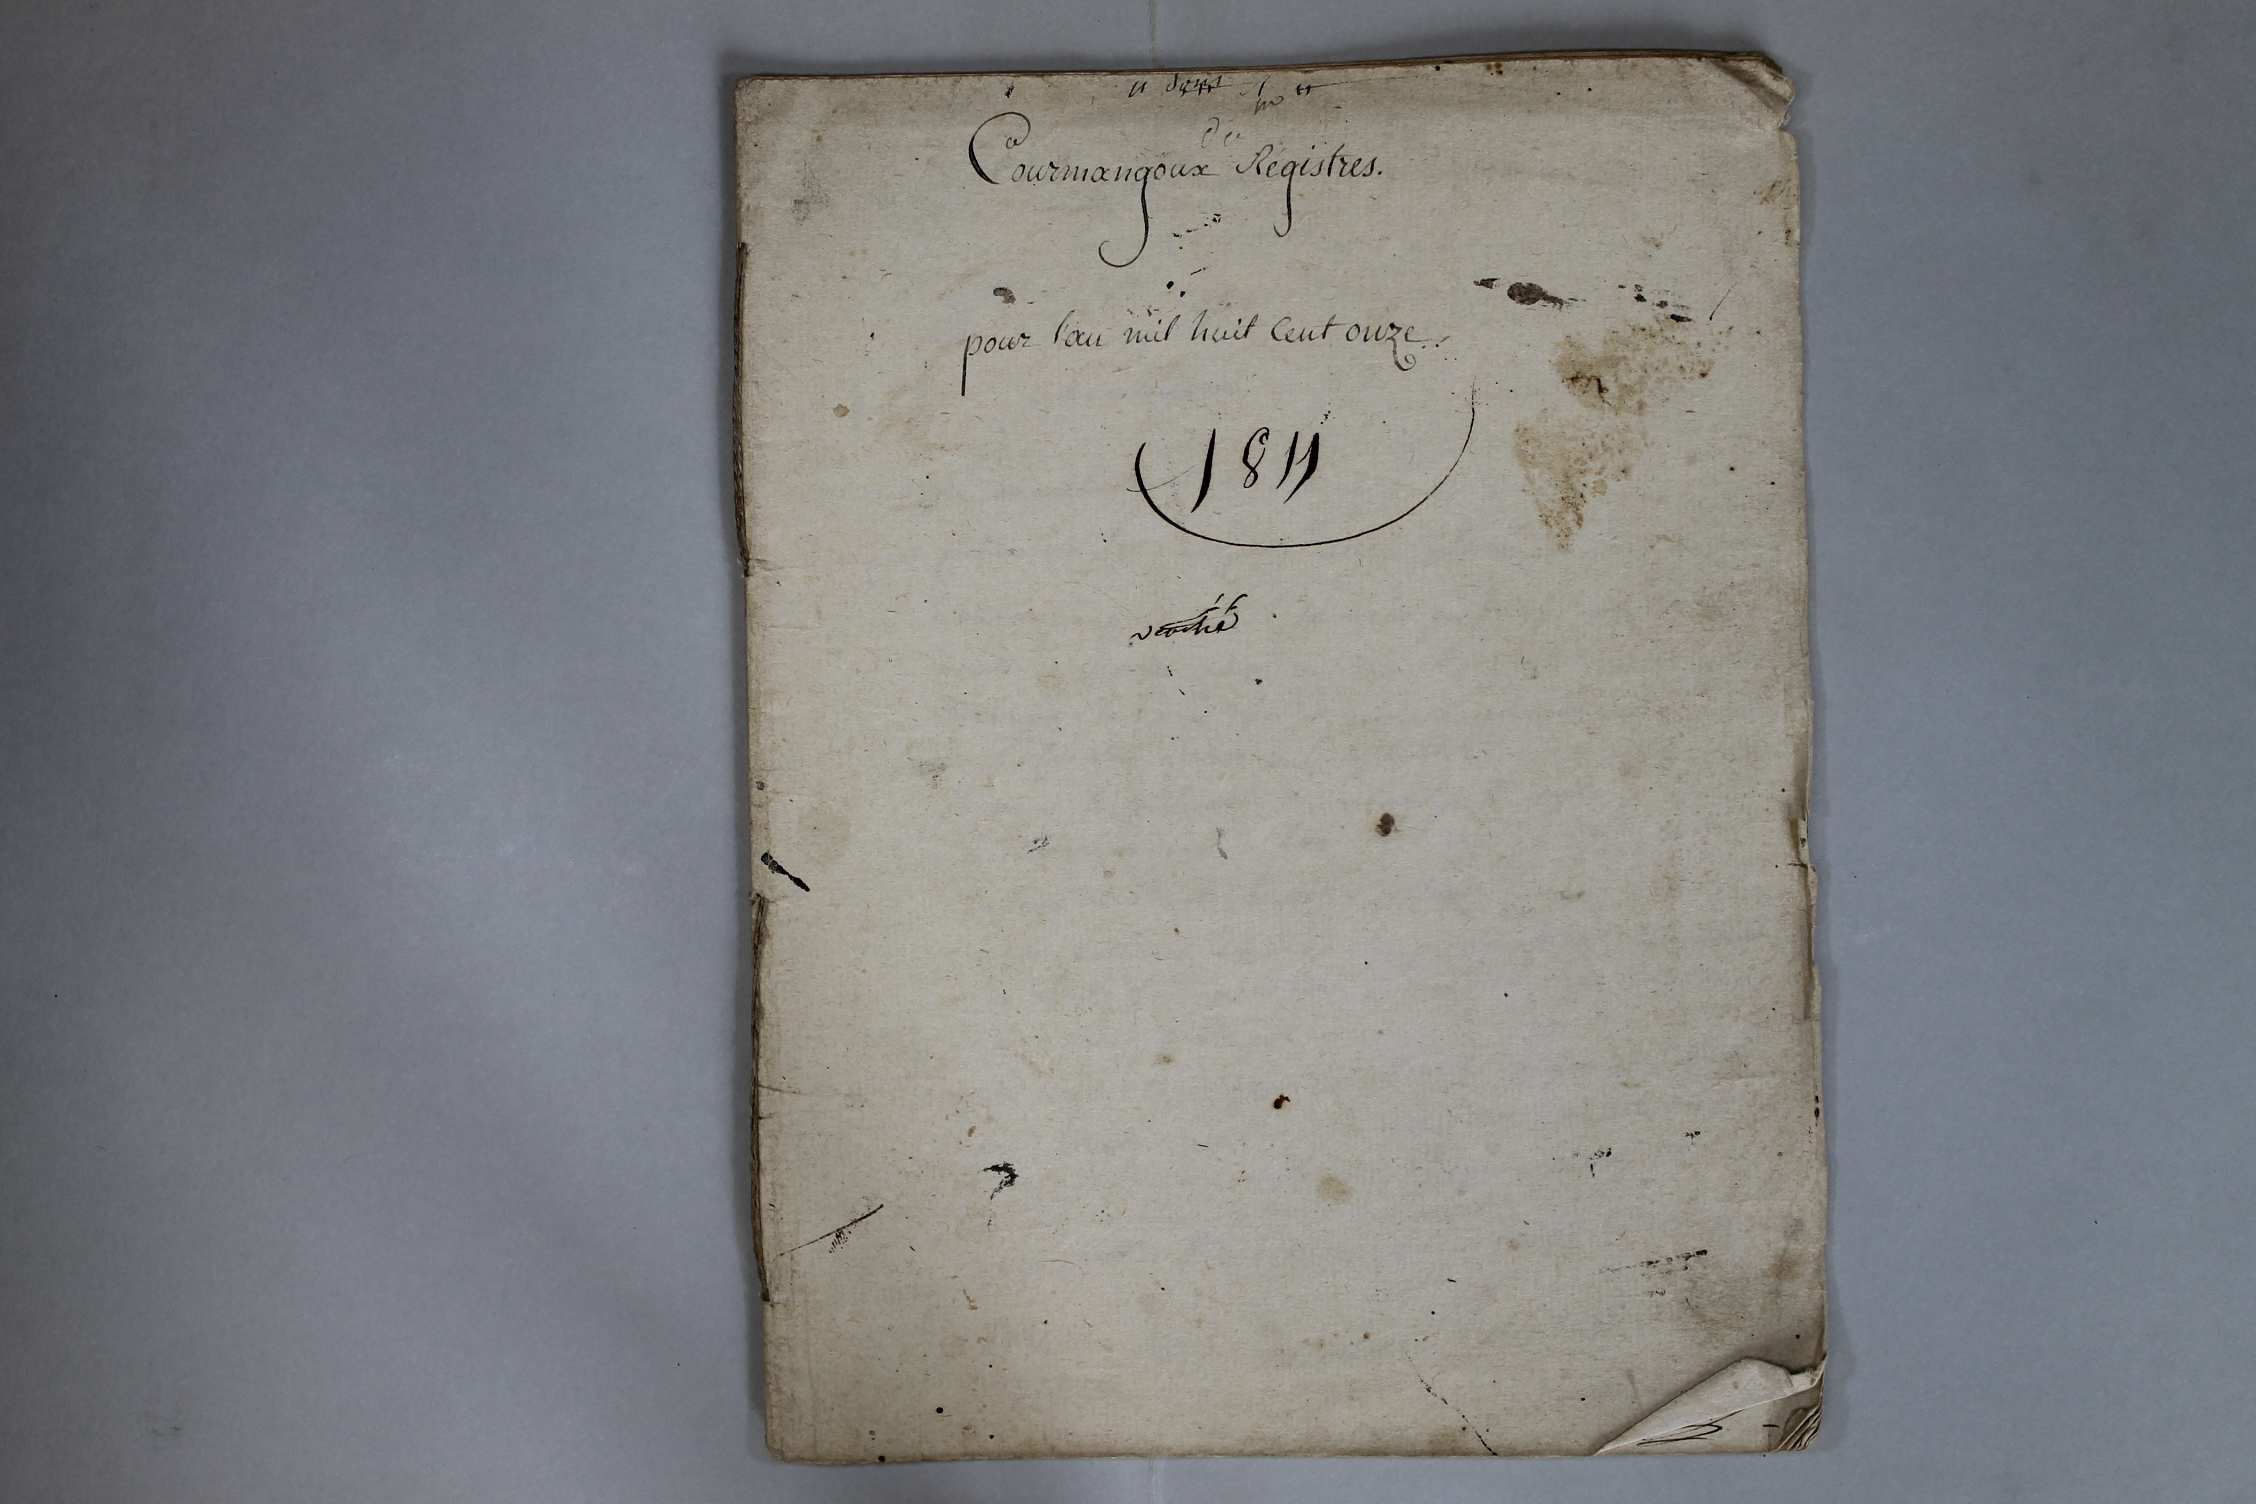 Courmangoux Registres.
pour l'an mil huit Cent onze.
1811